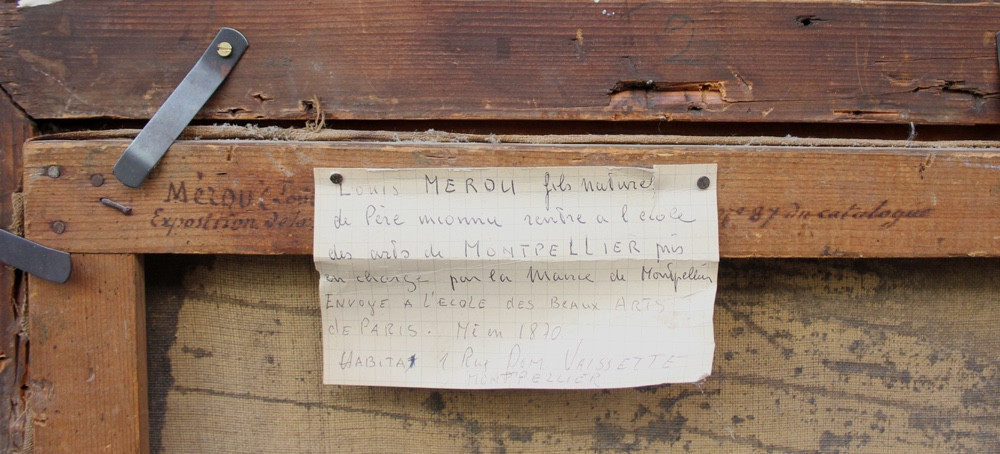 Mérou Louis
Exposition de la
n° 87 du catalogue
Louis MEROU fils naturel
de Père inconnu rentre a l'école
des arts de MONTPELLIER pris
en charge par la Mairie de Montpellier
ENVOYE A L'ECOLE des Beaux ARTS
de PARIS. 1870
HABITAT 1 Rue Dom VAISSETTE
MONTPELLIER